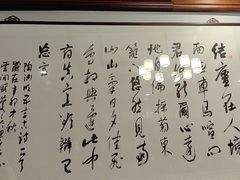 结廬在人境
而無車馬喧问
君何能爾心遠
地自偏採菊東
籬下悠然見南
山山氣日夕佳飛
鳥相與還此中
有真意欲辯已
忘言